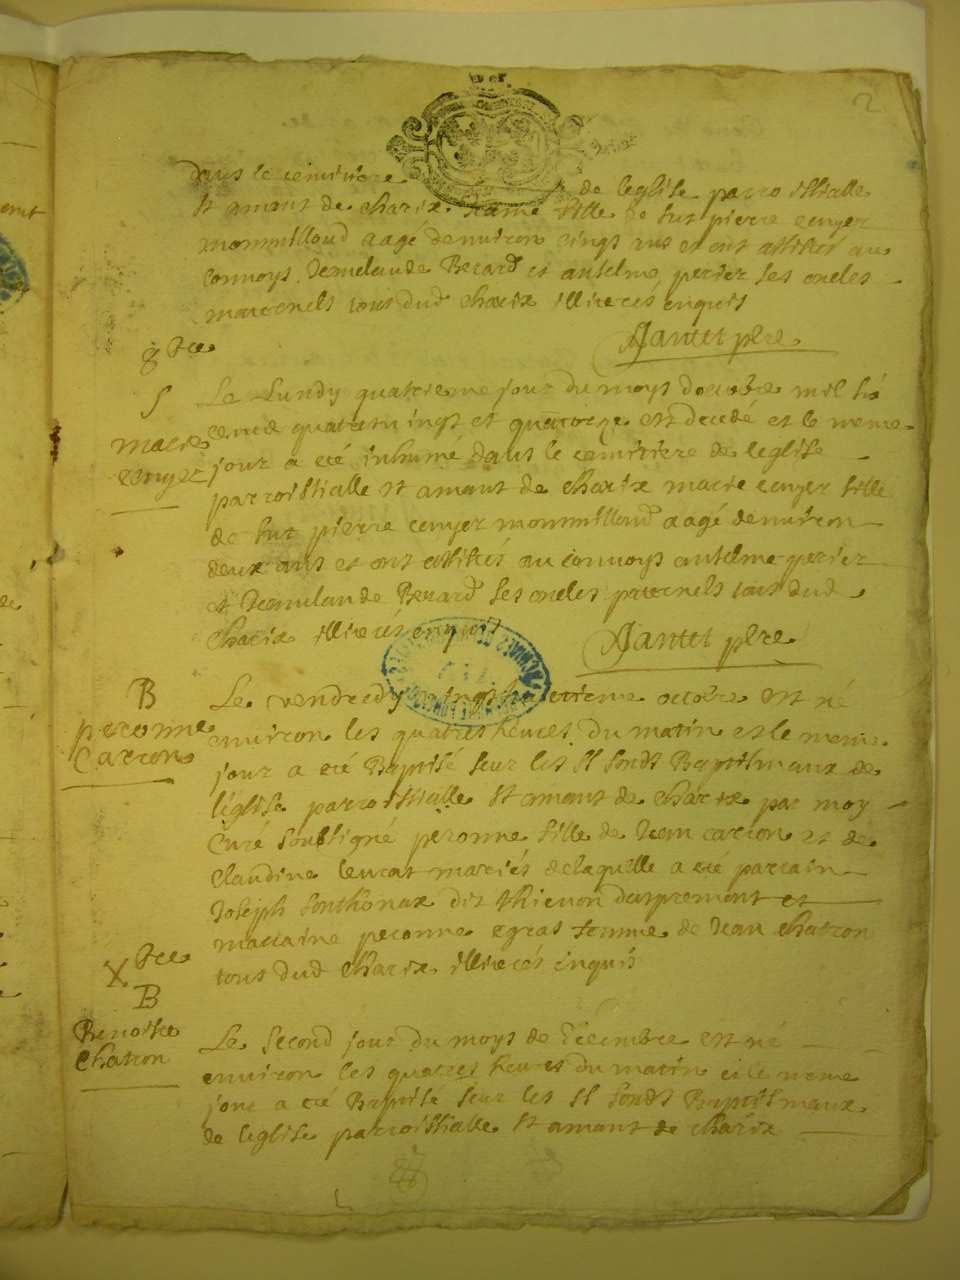 2
dans le cemitiere de leglise parroissialle
St amant de charix Jeanne fille de fut pierre cuyer
mommilloud aagé denuiron cinqs ans et ont assistés au
conuoys Jemelande Berard et anselme perier ses oncles
maternels tous dud charix illiterés enquis
Jantet pbre
8bre
S
marie
cuyer
Le Lundy quatrieme jour du moys doctobre mil six
cents quatrevingt et quatorze est decedé et le meme
jour a eté inhumé dans le cemitiere de leglise
parroissialle St amant de charix marie cuyer fille
de fut pierre cuyer mommilloud aagé denuiron
deux ans et ont assistés au conuoys anselme perier
et Jemelande Berard ses oncles paternels tous dud
charix illiterés enquis
Jantet pbre
B
peronne
Carron
Le vendredy vingt octobre est né
enuiron les quatres heures du matin et le meme
jour a eté Baptisé sur les St fonds Baptismaux de
léglise parroissialle St amant de charix par moy
Curé soussigné peronne fille de Jean carron et de
claudine leurat mariés delaquelle a eté parrain
Joseph sonthonax dit thienon daspremont et
marraine peronne egras femme de Jean chatron
tous dud charix illiterés enquis
Xbre
B
Benoiste
Chatron
Le second jour du moys de Décembre est né
enuiron les quatres heures du matin et le meme
jour a eté Baptisé sur les St fonds Baptismaux
de leglise parroissialle St amant de charix